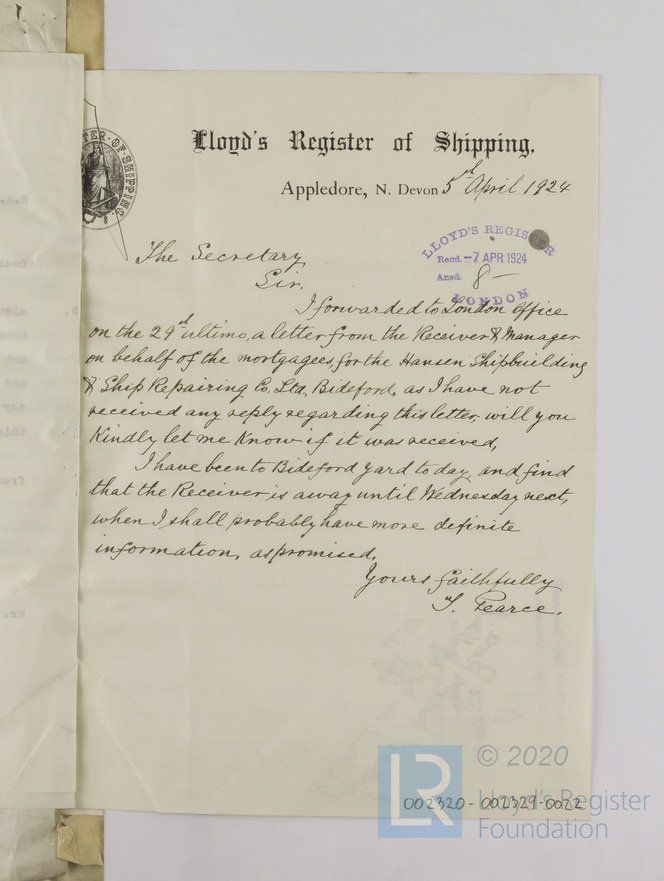 Lloyd's Register of Shipping,
Appledore, N. Devon 5th April 1924
LLOYD'S REGISTER
Recd. -7 APR 1924
Ansd. 8 -
LONDON
TER OF SHIPPING.
The Secretary
Sir.
I forwarded to London Office
on the 29th ultimo, a letter from the Receiver & Manager
on behalf of the mortgagees, for the Hansen Shipbuilding
& Ship Repairing Co. Ltd, Bideford, as I have not
received any reply regarding this letter, will you
Kindly let me Know if it was received,
I have been to Bideford yard to day, and find
that the Receiver is away until Wednesday next,
when I shall probably have more definite
information, as promised.
Yours faithfully
T. Pearce.
002320-002329-0022
LR
© 2020
Lloyd's Register
Foundation